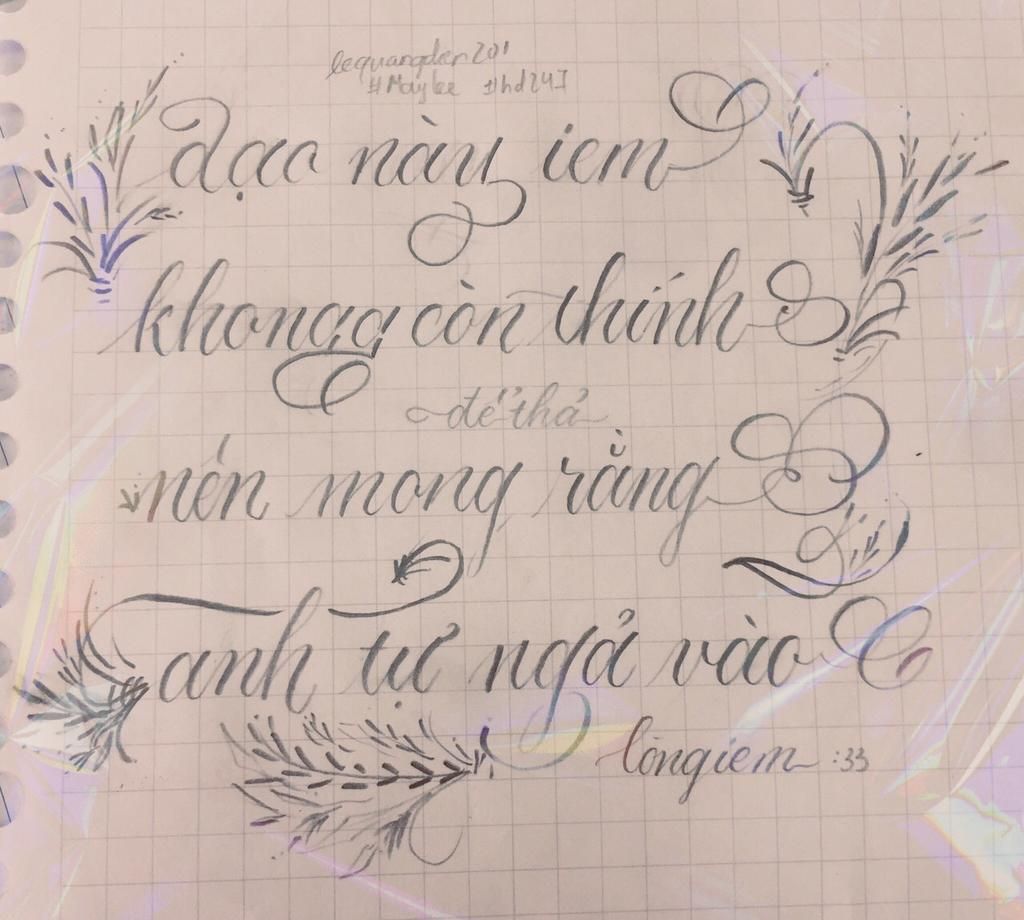 lequangder201
#Maybee #hd247
dạo này iem
không còn thính
để thả
nên mong rằng
anh tự ngả vào
lòng iem :33